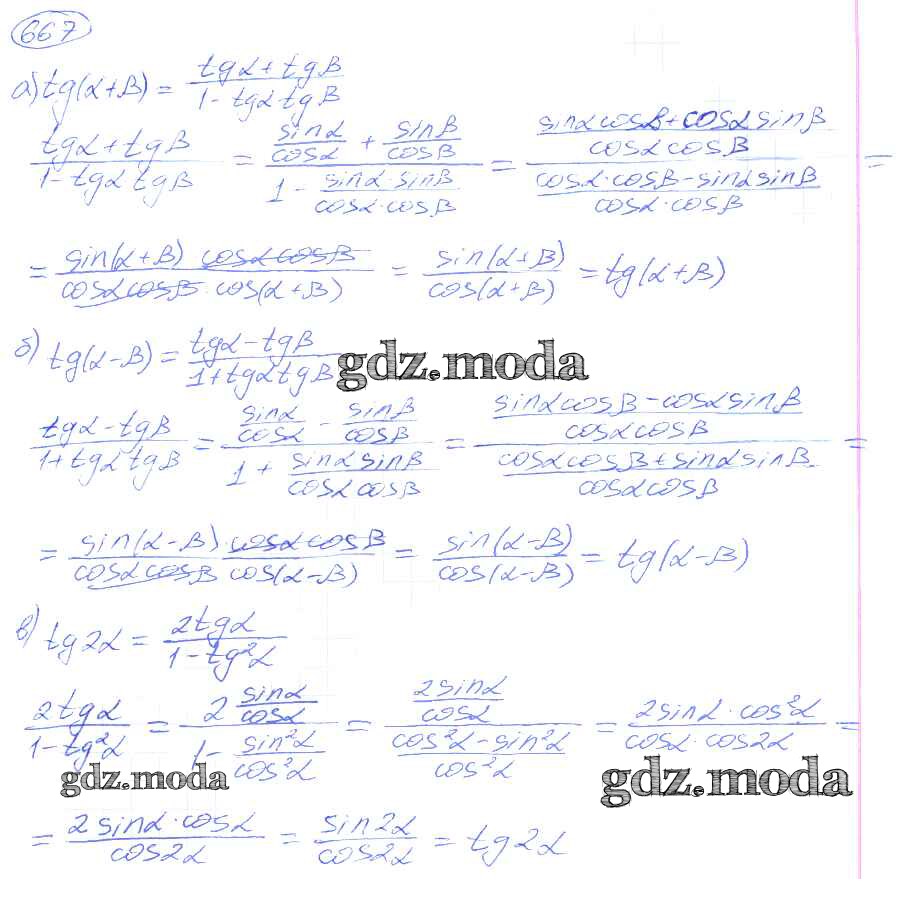 667
а) tg(α+β) = (tgα+tgβ)/(1-tgα tgβ)
(tgα+tgβ)/(1-tgα tgβ) = (sinα/cosα + sinβ/cosβ)/(1 - (sinα·sinβ)/(cosα·cosβ)) = ((sinα cosβ+cosα sinβ)/(cosα cosβ))/((cosα·cosβ-sinα sinβ)/(cosα·cosβ)) =
= (sin(α+β) cosα cosβ)/(cosα cosβ·cos(α+β)) = sin(α+β)/cos(α+β) = tg(α+β)
б) tg(α-β) = (tgα-tgβ)/(1+tgα tgβ)
gdz.moda
(tgα-tgβ)/(1+tgα tgβ) = (sinα/cosα - sinβ/cosβ)/(1 + (sinα sinβ)/(cosα cosβ)) = ((sinα cosβ-cosα sinβ)/(cosα cosβ))/((cosα cosβ+sinα sinβ)/(cosα cosβ)) =
= (sin(α-β)·cosα cosβ)/(cosα cosβ cos(α-β)) = sin(α-β)/cos(α-β) = tg(α-β)
в) tg2α = 2tgα/(1-tg²α)
2tgα/(1-tg²α) = (2 sinα/cosα)/(1 - sin²α/cos²α) = (2sinα/cosα)/((cos²α-sin²α)/cos²α) = (2sinα·cos²α)/(cosα·cos2α) =
gdz.moda
gdz.moda
= (2sinα·cosα)/cos2α = sin2α/cos2α = tg2α